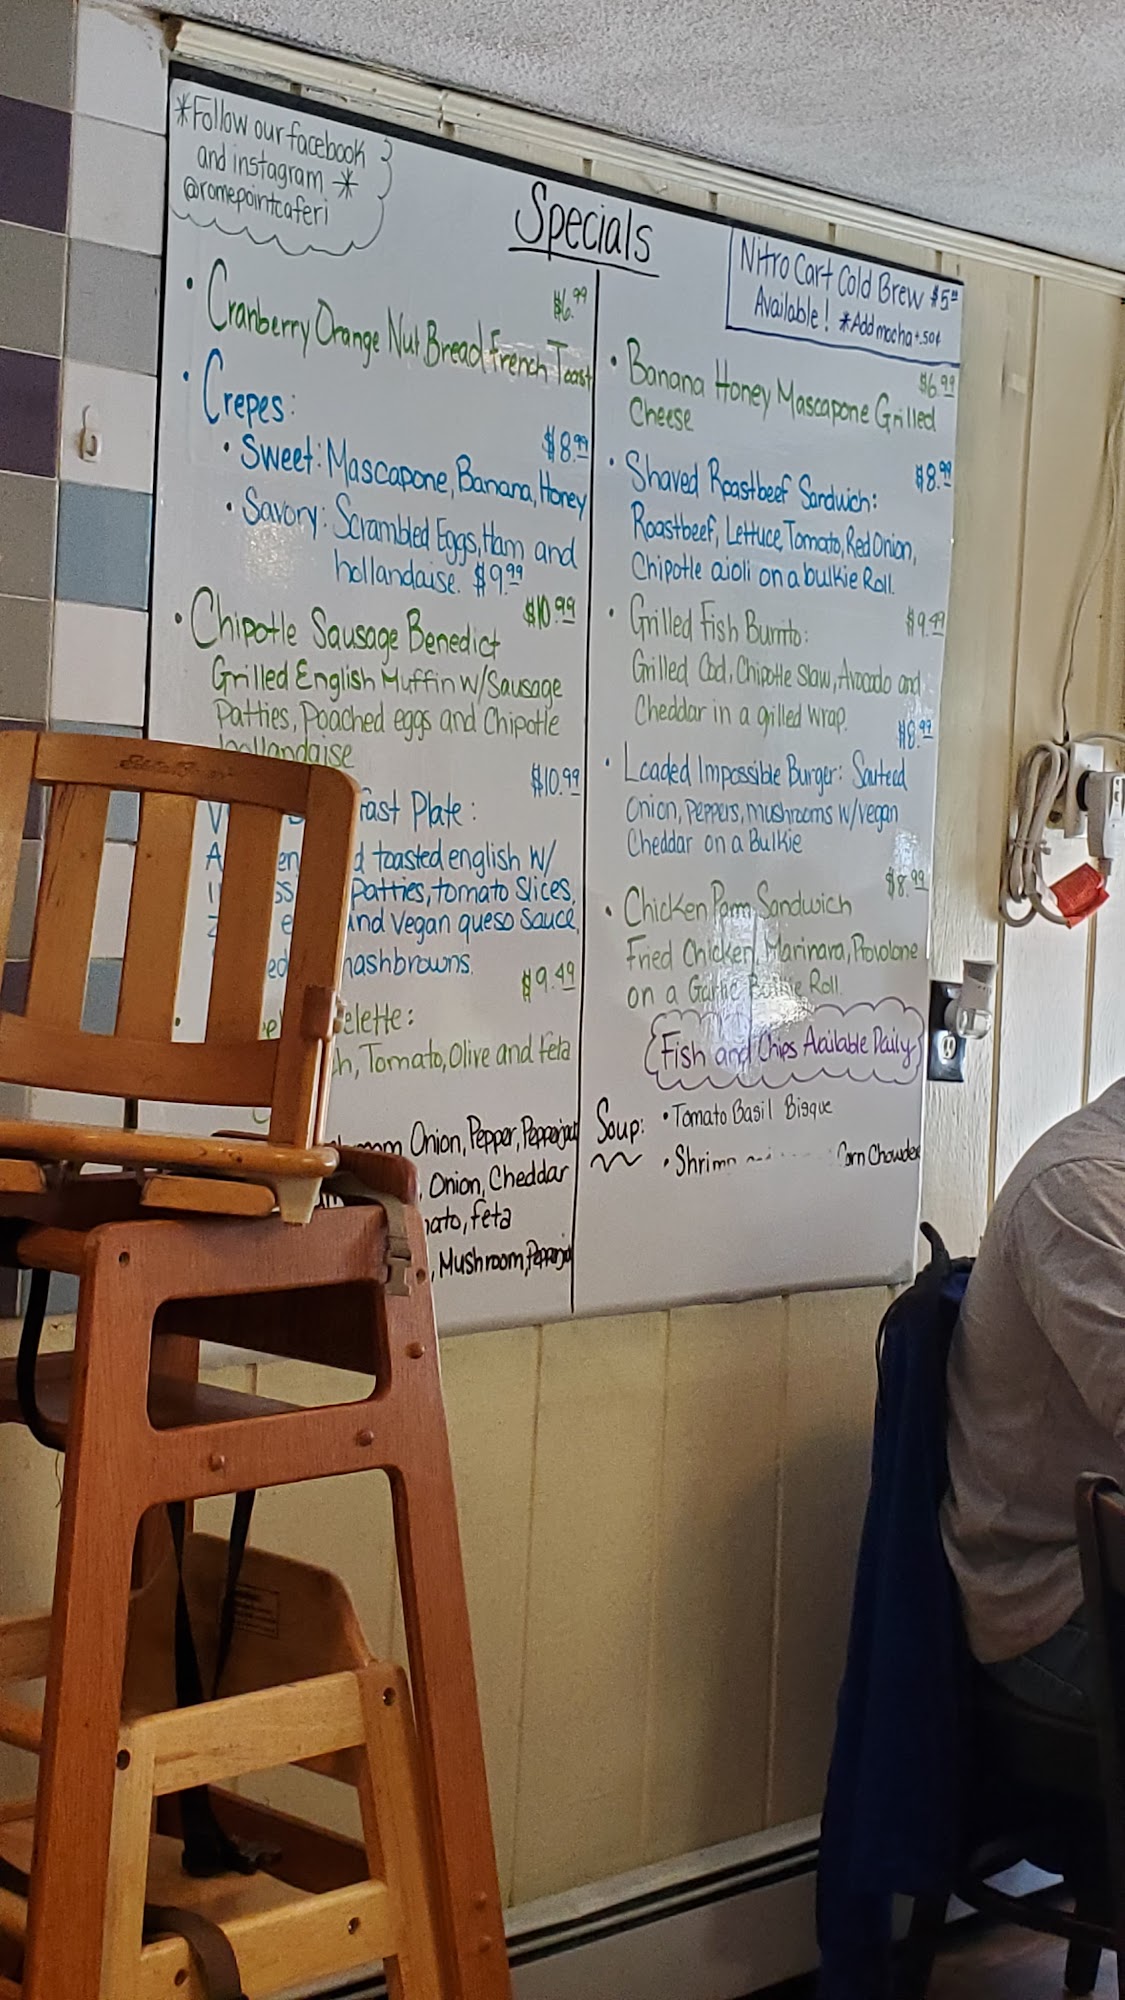 *Follow our facebook
and instagram *
@romepointcaferi
Specials
• Cranberry Orange Nut Bread French Toast $6.99
• Crepes:
• Sweet: Mascapone, Banana, Honey $8.99
• Savory: Scrambled Eggs, Ham and
hollandaise. $9.99
• Chipotle Sausage Benedict $10.99
Grilled English Muffin w/Sausage
Patties, Poached eggs and Chipotle
hollandaise
Plate: $10.99
toasted english w/
patties, tomato slices,
and vegan queso sauce
hashbrowns.
$9.49
Tomato, Olive and feta
Onion, Pepper, Pepperjack
, Onion, Cheddar
, feta
, Mushroom, Pepperjack
Nitro Cart Cold Brew $5.00
Available! *Add mocha +.50¢
• Banana Honey Mascapone Grilled $6.99
Cheese
• Shaved Roastbeef Sandwich: $8.99
Roastbeef, Lettuce, Tomato, Red Onion,
Chipotle aioli on a bulkie Roll.
• Grilled Fish Burrito: $9.49
Grilled Cod, Chipotle Slaw, Avocado and
Cheddar in a grilled wrap.
• Loaded Impossible Burger: Sauteed $8.99
Onion, Peppers, mushrooms w/vegan
Cheddar on a Bulkie
• Chicken Parm Sandwich $8.99
Fried Chicken, Marinara, Provolone
on a Garlic Bulkie Roll.
Fish and Chips Available Daily
Soup: • Tomato Basil Bisque
• Shrimp and Corn Chowder